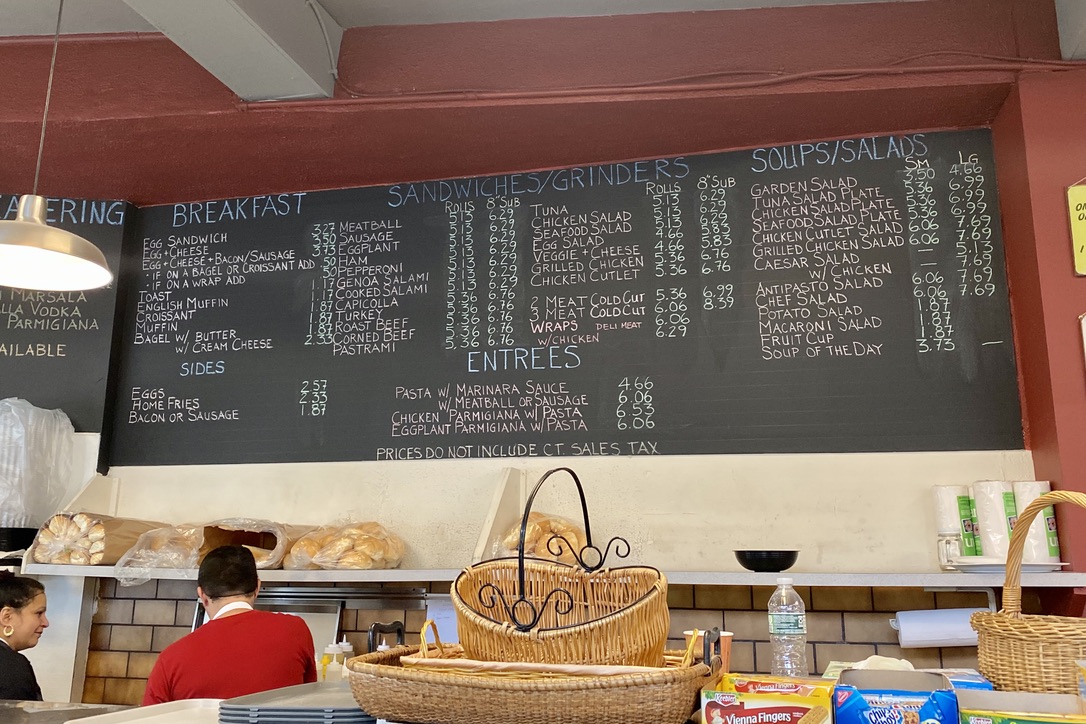 CATERING
MARSALA
VODKA
PARMIGIANA
BREAKFAST
EGG SANDWICH 3.27
EGG + CHEESE 3.50
EGG + CHEESE + BACON/SAUSAGE 3.73
· IF ON A BAGEL OR CROISSANT ADD .50
· IF ON A WRAP ADD
TOAST 1.17
ENGLISH MUFFIN 1.17
CROISSANT
MUFFIN
BAGEL W/ BUTTER
W/ CREAM CHEESE 2.33
SIDES
EGGS 2.57
HOME FRIES 2.33
BACON OR SAUSAGE 1.87
SANDWICHES/GRINDERS
ROLLS 8" SUB
MEATBALL 5.13 6.29
SAUSAGE 5.13 6.29
EGGPLANT 5.13 6.29
HAM 5.13 6.29
PEPPERONI 5.13 6.29
GENOA SALAMI 5.13 6.29
COOKED SALAMI 5.13 6.29
CAPICOLLA 5.36 6.76
TURKEY 5.36 6.76
ROAST BEEF 5.36 6.76
CORNED BEEF 5.36 6.76
PASTRAMI 5.36 6.76
ROLLS 8" SUB
TUNA 5.13 6.29
CHICKEN SALAD 5.13 6.29
SEAFOOD SALAD 5.13 6.29
EGG SALAD 4.66 5.83
VEGGIE + CHEESE 4.66 5.83
GRILLED CHICKEN 5.36 6.76
CHICKEN CUTLET 5.36 6.76
2 MEAT COLD CUT 5.36 6.99
3 MEAT COLD CUT 6.06 8.39
WRAPS DELI MEAT 6.06
W/CHICKEN 6.29
ENTREES
PASTA W/ MARINARA SAUCE 4.66
W/ MEATBALL OR SAUSAGE 6.06
CHICKEN PARMIGIANA W/ PASTA 6.53
EGGPLANT PARMIGIANA W/ PASTA 6.06
PRICES DO NOT INCLUDE CT. SALES TAX
SOUPS/SALADS
SM LG
GARDEN SALAD 3.50 4.66
TUNA SALAD PLATE 5.36 6.99
CHICKEN SALAD PLATE 5.36 6.99
SEAFOOD SALAD PLATE 5.36 6.99
CHICKEN CUTLET SALAD 6.06 7.69
GRILLED CHICKEN SALAD 6.06 7.69
CAESAR SALAD — 5.13
W/ CHICKEN 7.69
ANTIPASTO SALAD 6.06 7.69
CHEF SALAD 6.06 7.69
POTATO SALAD 1.87
MACARONI SALAD 1.87
FRUIT CUP 1.87
SOUP OF THE DAY 3.73 —
Vienna Fingers
Vienna Fingers
Chips